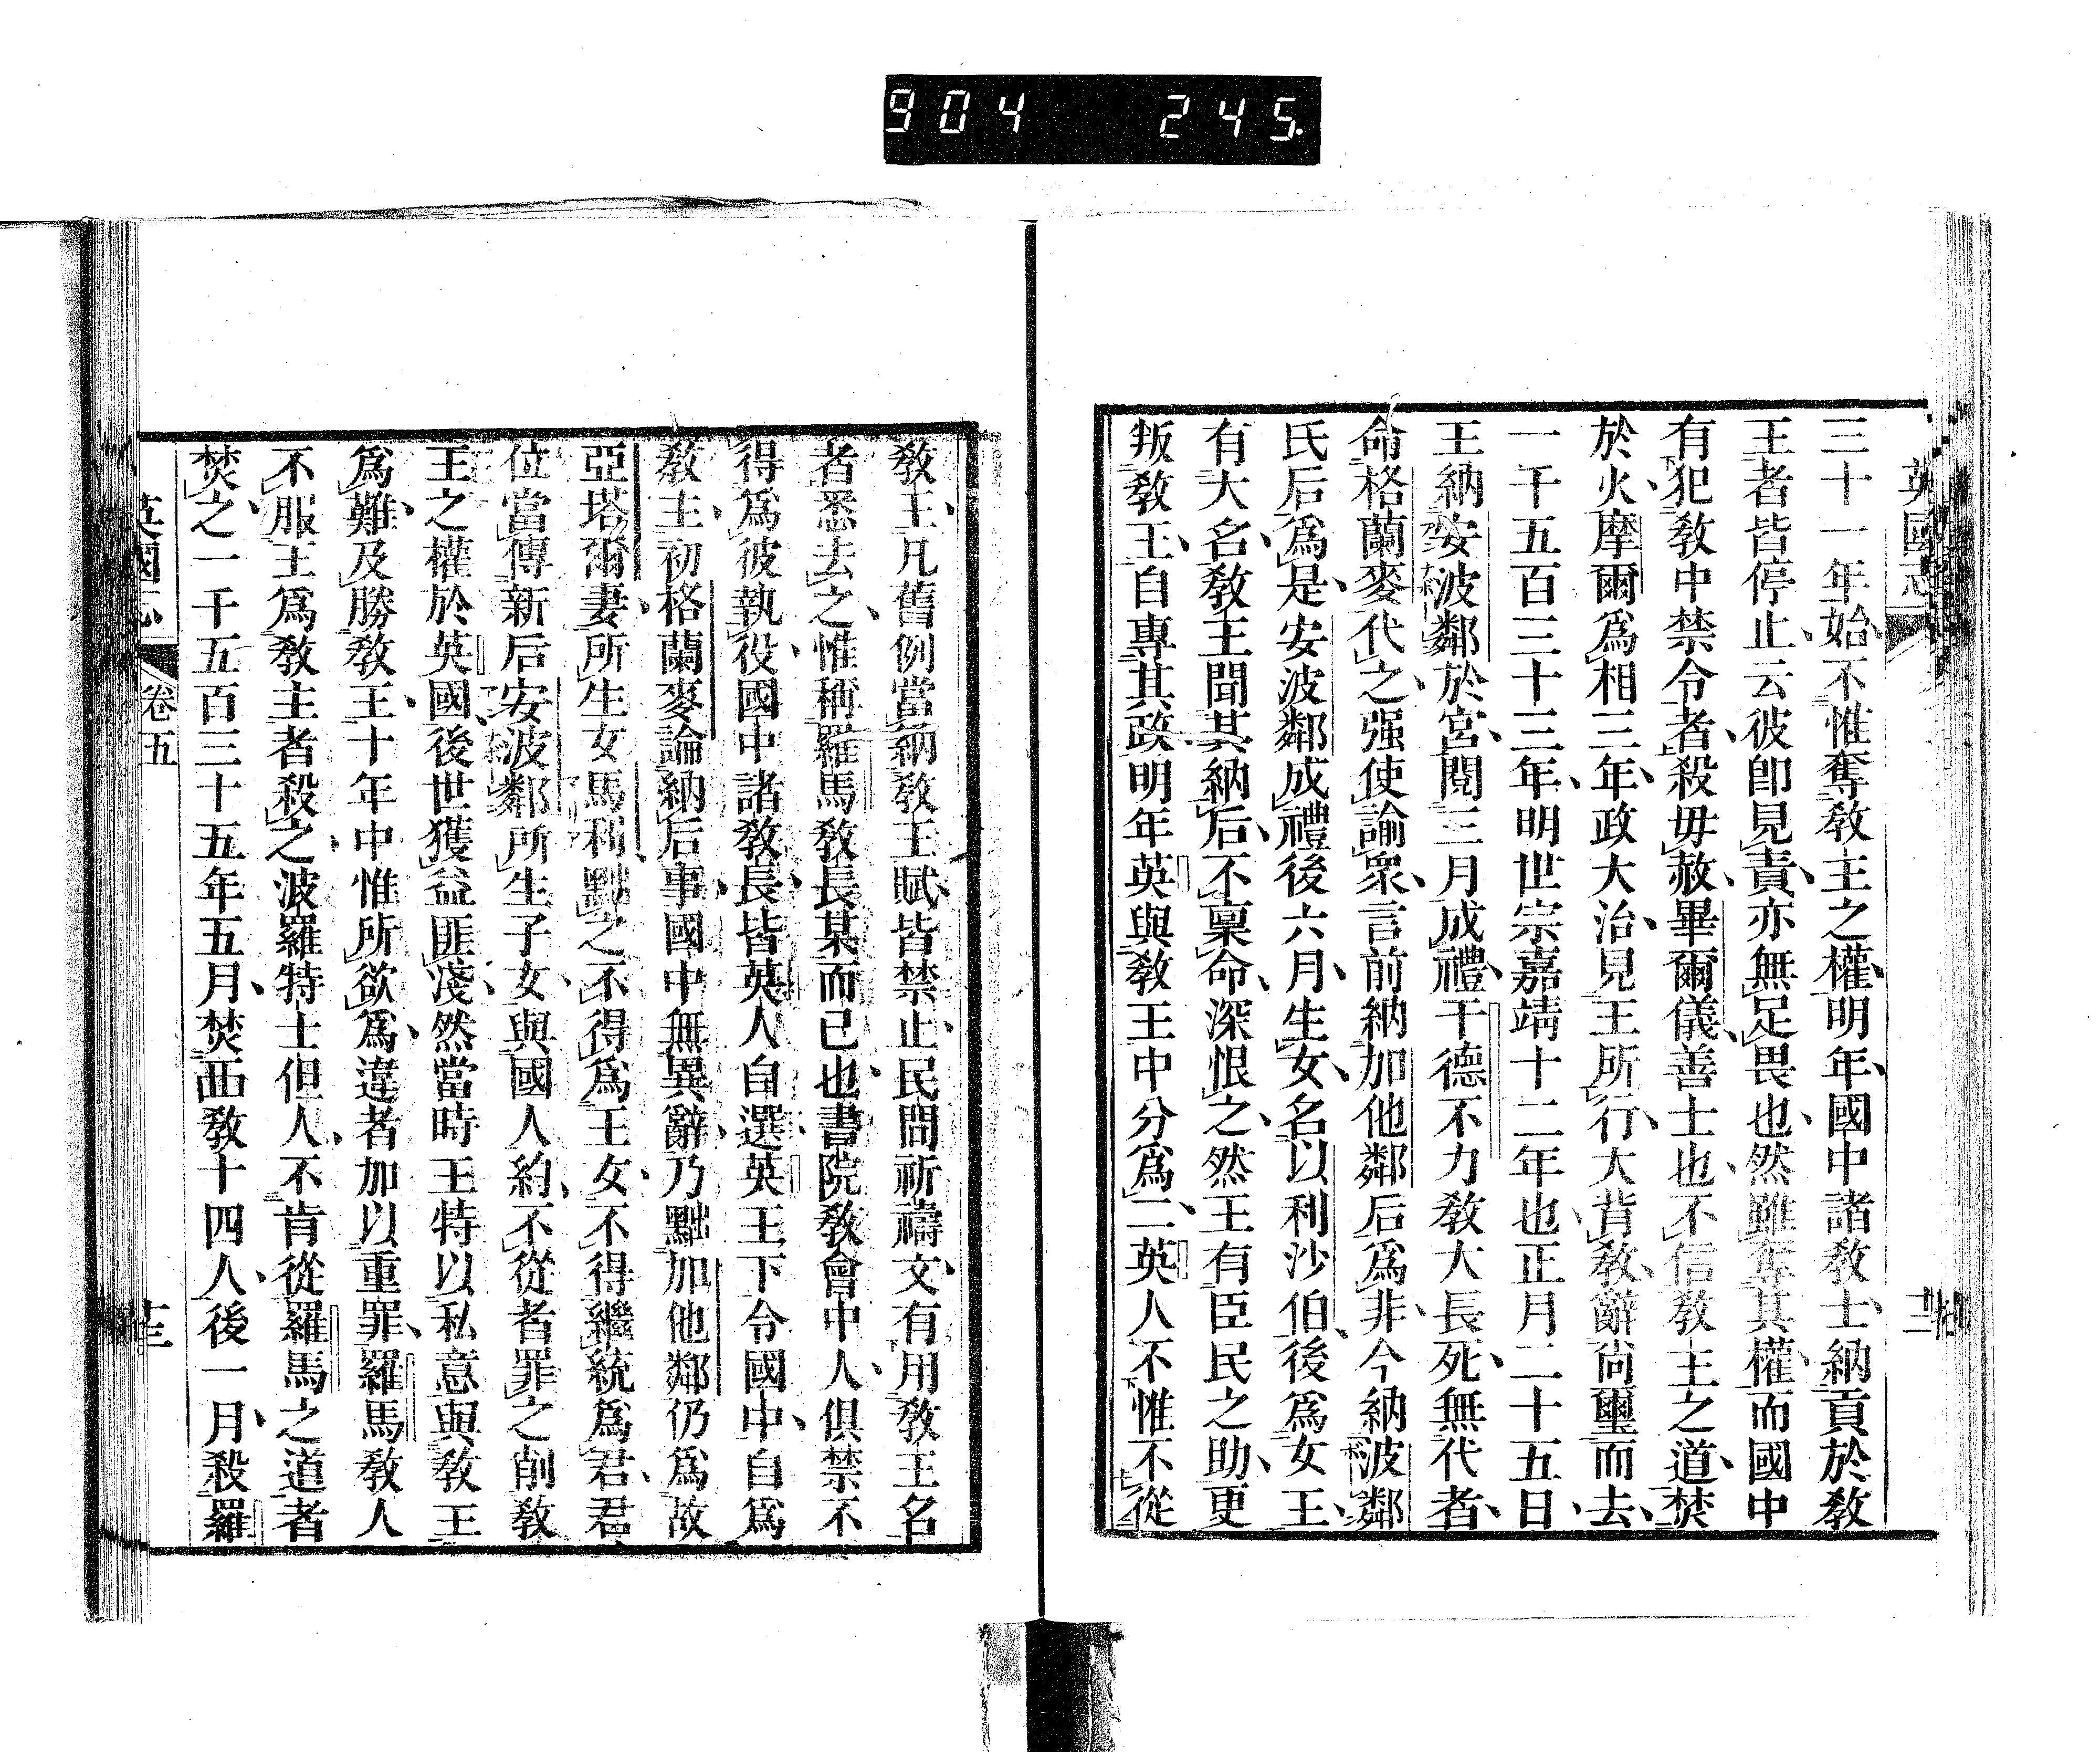 904 245
英國志
三十一年始不惟奪敎主之權明年國中諸敎士納貢於敎
王者皆停止云彼卽見責亦無足畏也然雖奪其權而國中
有犯敎中禁令者殺毋赦畢爾儀善士也不信敎主之道焚
於火摩爾爲相三年政大治見王所行大背敎辭尚璽而去
一千五百三十三年明世宗嘉靖十二年也正月二十五日
王納安波鄰於宮閱三月成禮干德不力敎大長死無代者
命格蘭麥代之强使諭衆言前納加他鄰后爲非今納波鄰
氏后爲是安波鄰成禮後六月生女名以利沙伯後爲女王
有大名敎王聞其納后不稟命深恨之然王有臣民之助更
叛敎王自專其政明年英與敎王中分爲二英人不惟不從
敎王凡舊例當納敎王賦皆禁止民間祈禱文有用敎王名
者悉去之惟稱羅馬敎長某而已也書院敎會中人俱禁不
得爲彼執役國中諸敎長皆英人自選英王下令國中自爲
敎主初格蘭麥論納后事國中無異辭乃黜加他鄰仍爲故
亞塔爾妻所生女馬利黜之不得爲王女不得繼統爲君君
位當傳新后安波鄰所生子女與國人約不從者罪之削敎
王之權於英國後世獲益匪淺然當時王特以私意與敎王
爲難及勝敎王十年中惟所欲爲違者加以重罪羅馬敎人
不服王爲敎主者殺之波羅特士但人不肯從羅馬之道者
焚之一千五百三十五年五月焚西敎十四人後一月殺羅
英國志 卷五